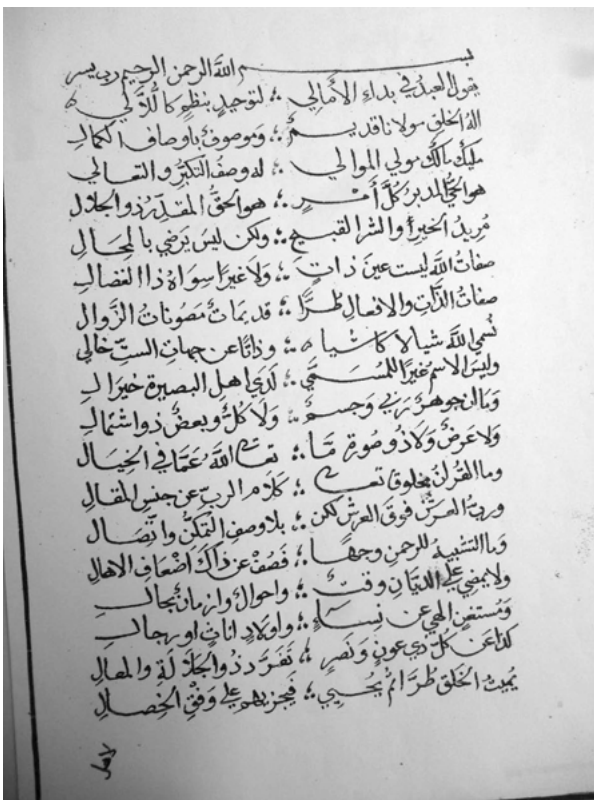 بسم الله الرحمن الرحيم رب يسر
يقول العبد في بداء الأمالي ؞ لتوحيد بنظم كاللآلي
اله الخلق مولانا قديم ؞ وموصوف باوصاف الكمال
مليك مالك مولي الموالي ؞ له وصف التكبر والتعالي
هو الحي المدبر كل أمر ؞ هو الحق المقدر ذو الجلال
مريد الخير والشر القبيح ؞ ولكن ليس يرضي بالمحال
صفات الله ليست عين ذات ؞ ولا غيرا سواه ذا انفصال
صفات الذات والافعال طرا ؞ قديمات مصونات الزوال
نسمي الله شيا لا كاشياه ؞ وذاتا عن جهات الست خالي
وليس الاسم غيرا للمسمي ؞ لدي اهل البصيرة خير ال
وما ان جوهر ربي وجسم ؞ ولا كل وبعض ذو اشتمال
ولا عرض ولا ذو صورة ما ؞ تعالى الله عما في الخيال
وما القران مخلوق تعالى ؞ كلام الرب عن جنس المقال
ورب العرش فوق العرش لكن ؞ بلا وصف التمكن واتصال
وما التشبيه للرحمن وجها ؞ فصن عن ذاك اضعاف الاهال
ولا يمضي علي الديان وقت ؞ واحوال وازمان بحال
ومستغن الهي عن نساء ؞ واولاد اناث او رجال
كذا عن كل ذي عون ونصر ؞ تفرد ذو الجلالة والمعال
يميت الخلق طرا ثم يحيي ؞ فيجزيهم علي وفق الخصال